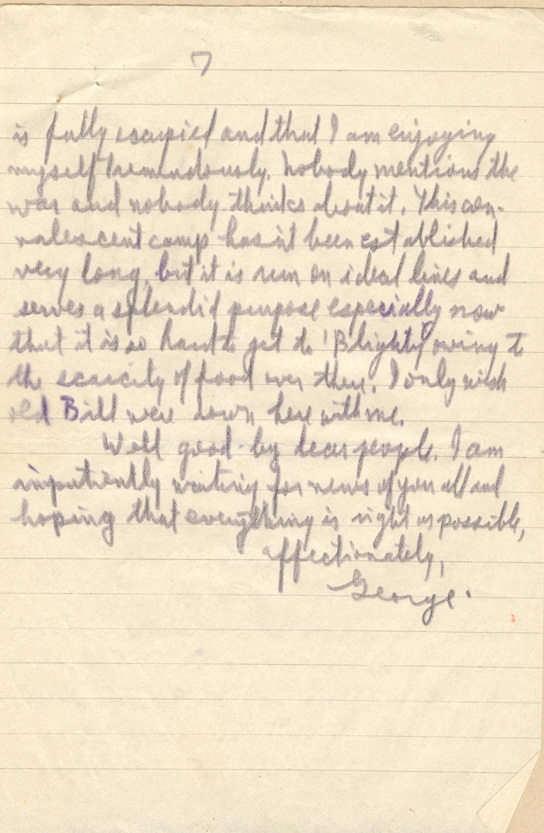 7
is fully occupied and that I am enjoying
myself tremendously. Nobody mentions the
war and nobody thinks about it. This con-
valescent camp hasn't been established
very long, but it is run on ideal lines and
serves a splendid purpose especially now
that it is so hard to get to "Blighty" owing to
the scarcity of food over there. I only wish
old Bill were down here with me.
Well good-by dear people. I am
impatiently waiting for news of you all and
hoping that everything is right as possible,
affectionately,
George.